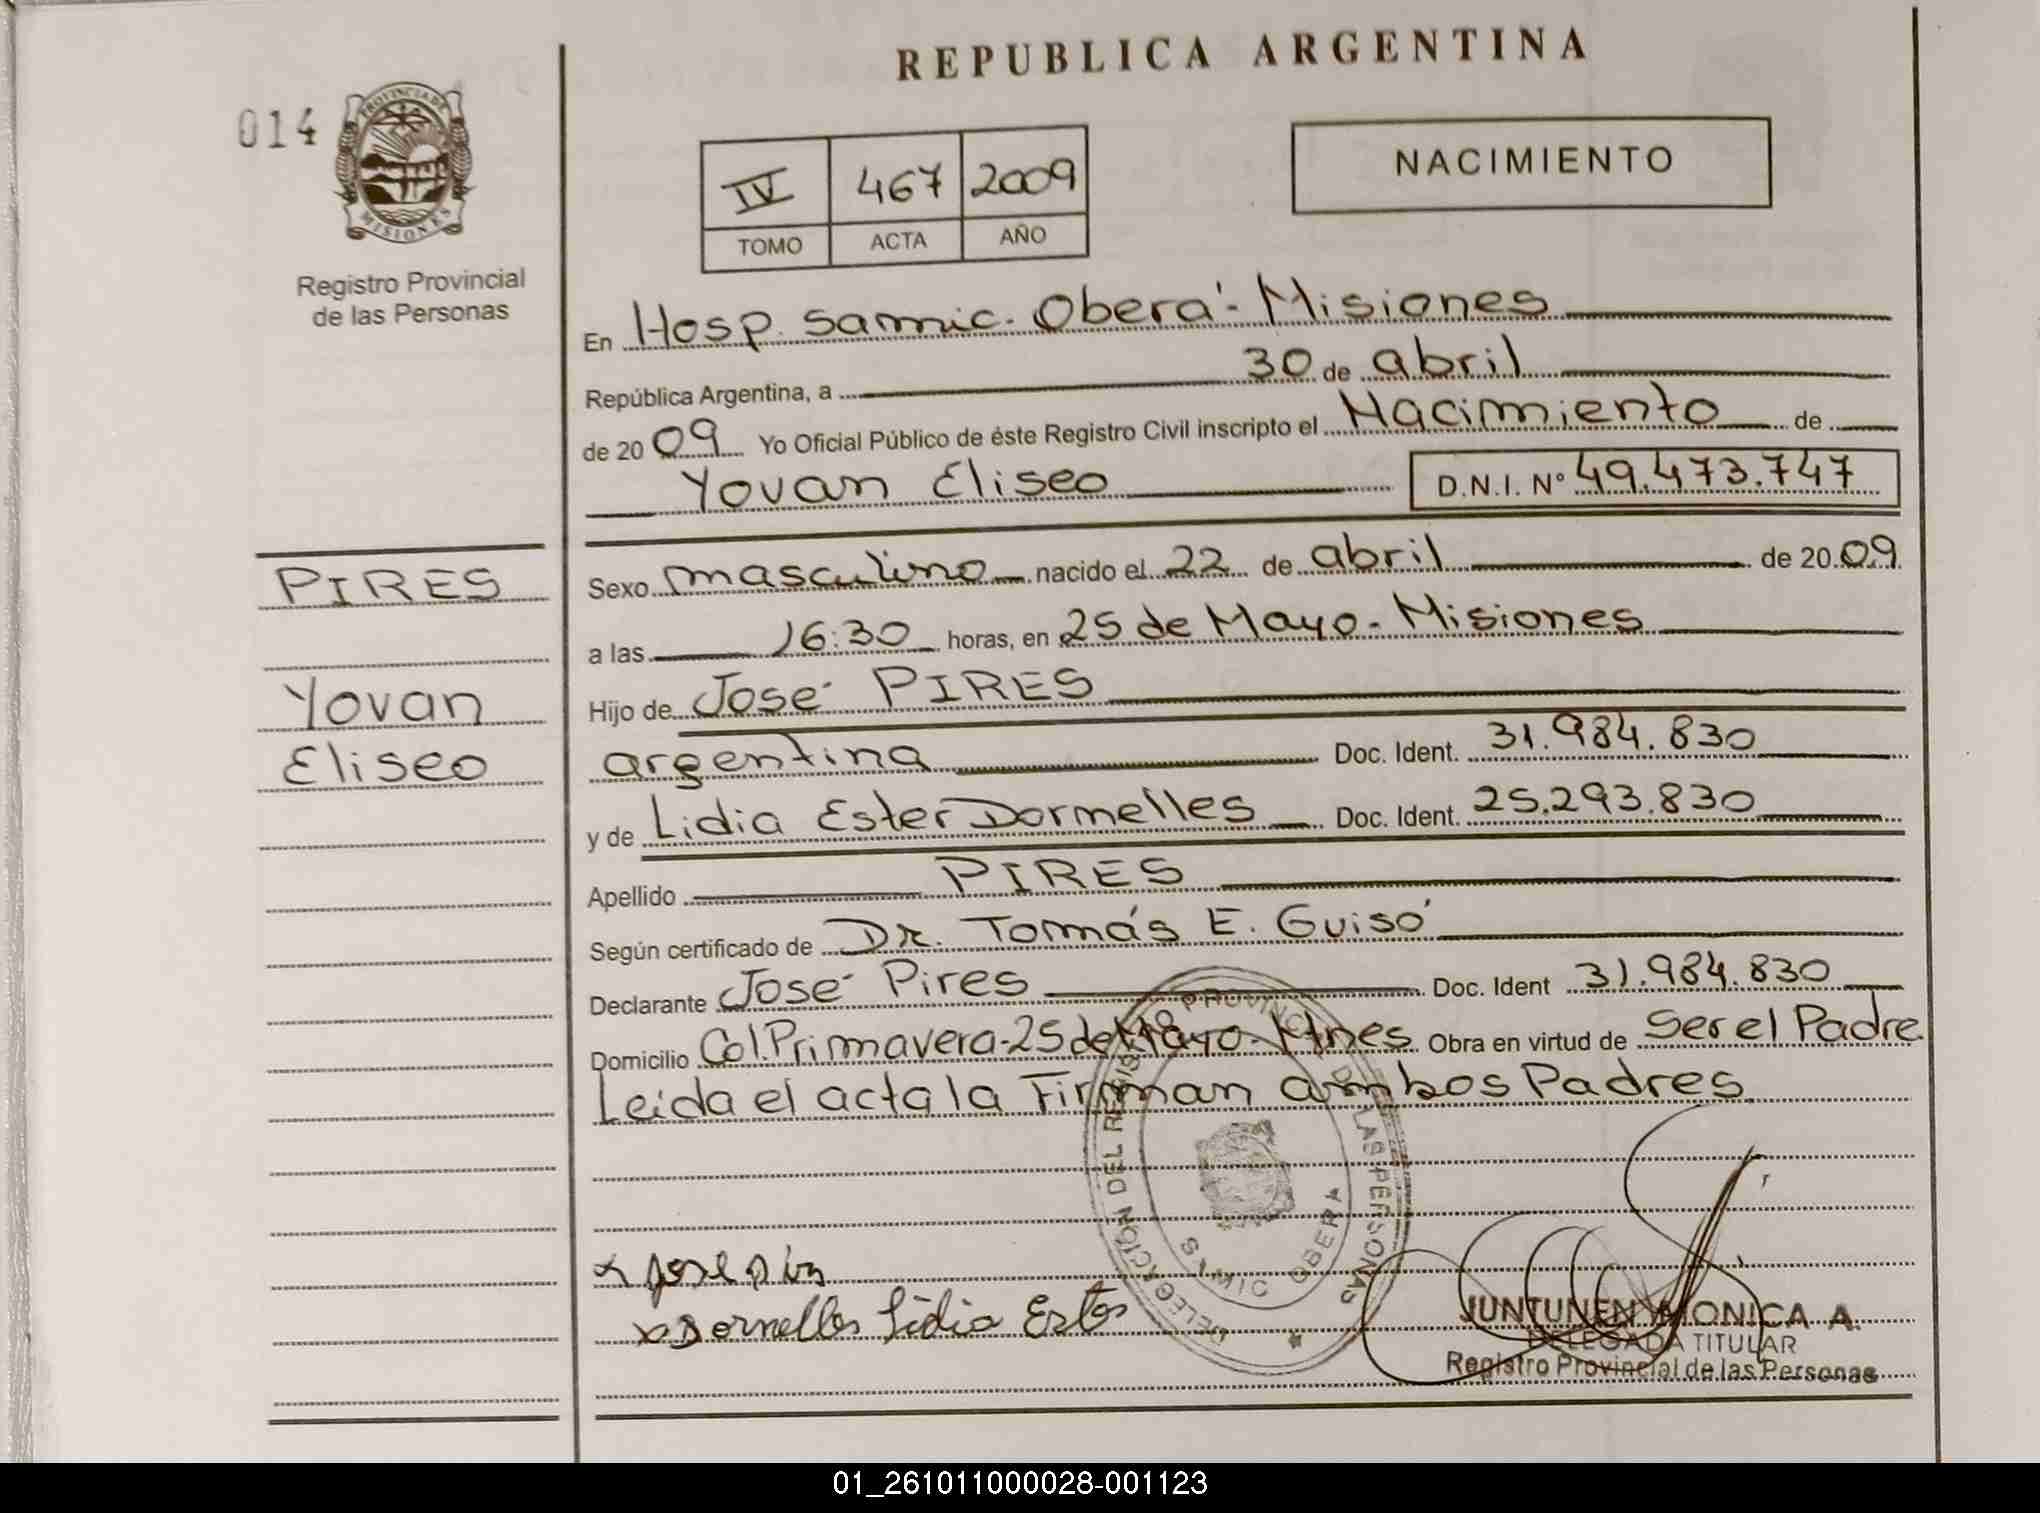 REPUBLICA ARGENTINA
014
PROVINCIA DE
MISIONES
Registro Provincial
de las Personas
IV 467 2009
TOMO ACTA AÑO
NACIMIENTO
En Hosp. Samic. Oberá - Misiones
República Argentina, a 30 de abril
de 2009 Yo Oficial Público de éste Registro Civil inscripto el Nacimiento de
Yovan Eliseo D.N.I. N° 49.473.747
PIRES
Yovan
Eliseo
Sexo masculino nacido el 22 de abril de 2009.
a las 16:30 horas, en 25 de Mayo - Misiones
Hijo de José PIRES
argentina Doc. Ident. 31.984.830
y de Lidia Ester Dornelles Doc. Ident. 25.293.830
Apellido PIRES
Según certificado de Dr. Tomás E. Guisó
Declarante José Pires Doc. Ident 31.984.830
Domicilio Col. Primavera - 25 de Mayo - Mnes Obra en virtud de Ser el Padre
Leida el acta la Firman ambos Padres
DELEGACION DEL REGISTRO PROVINCIAL DE LAS PERSONAS
OBERA
x Jose
x Dornelles Lidia Ester
JUNTUNEN MONICA A.
DELEGADA TITULAR
Registro Provincial de las Personas
01_261011000028-001123